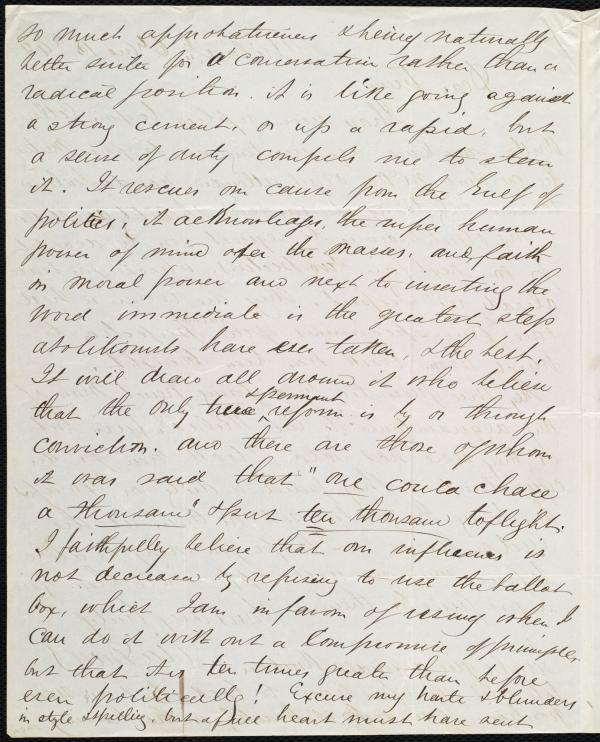 so much approbativeness & being naturally
better suited for a conservative rather than a
radical position. it is like going against
a strong current, or up a rapid, but
a sense of duty compels me to stem
it. It rescues our cause from the Gulf of
politics, it acknowledges, the super human
power of mind over the masses, and, faith
in moral power and next to inserting the
word immediate is the greatest step
abolitionists have ever taken, & the best.
It will draw all around it who believe
that the only true & permanent reform is by or through
conviction. and there are those of whom
it was said that "one could chase
a thousand" & put ten thousand to flight.
I faithfully believe that our influence is
not decreased by refusing to use the ballot
box, which I am in favor of using when I
can do it with out a compromise of principle,
but that it is ten times greater than before
even politically! Excuse my haste & blunders
in style & spelling. but a full heart must have vent